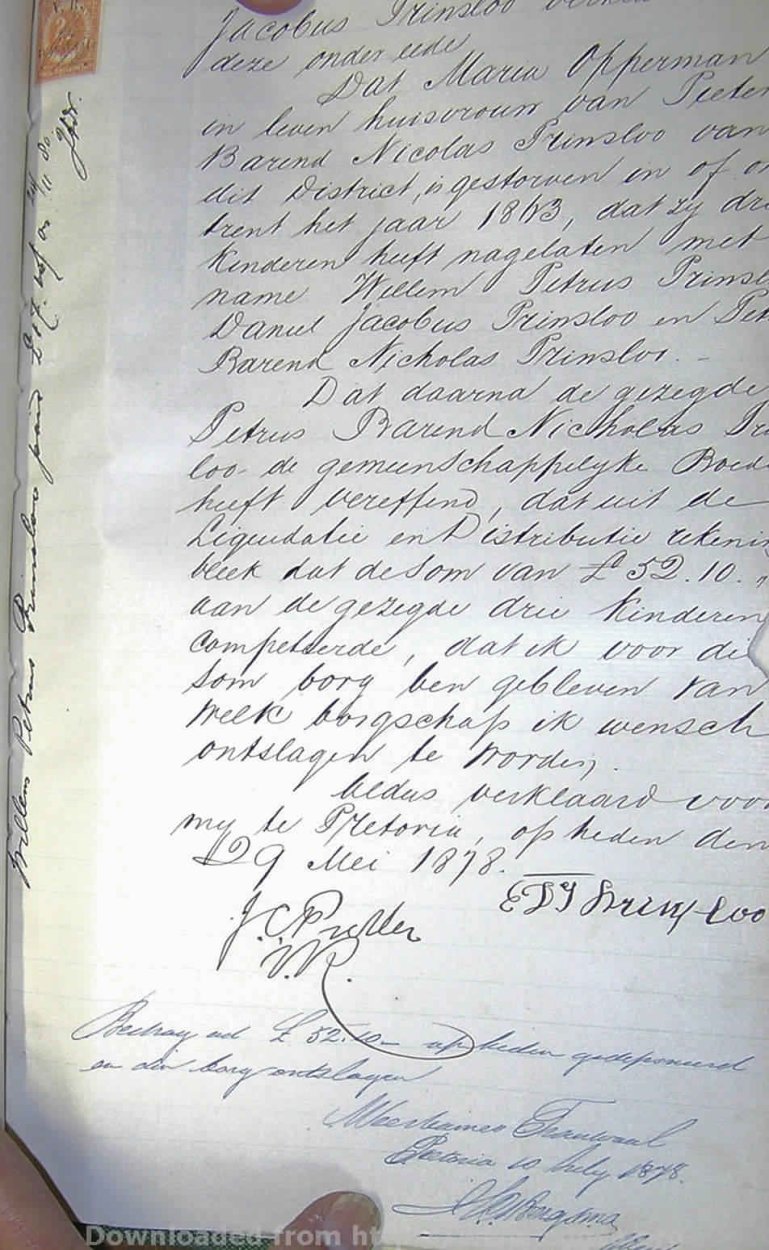 Jacobus Prinsloo
deze onder eede
Dat Maria Opperman
in leven huisvrouw van Pieter
Barend Nicolas Prinsloo van
dit District, is gestorven in of on
trent het jaar 1863, dat zy dri
Kinderen heeft nagelaten met
name Willem Petrus Prinsl
Daniel Jacobus Prinsloo en Pet
Barend Nicholas Prinsloo. -
Dat daarna de gezegde
Petrus Barend Nicholas Pri
loo de gemeenschappelyke Boed
heeft vereffend, dat uit de
Liquidatie en Distributie rekenin
bleek dat de Som van £52.10. "
aan de gezegde drie Kinderen
competeerde, dat ik voor di
Som borg ben gebleven van
welk borgschap ik wensch
ontslagen te worden,
Aldus verklaard voor
my te Pretoria, op heden den
29 Mei 1878.
Prinsloo
J.C. Preller
V.R.
Bedrag ad £52.10- op heden gedeponeerd
en die borg ontslagen
Weeskamer Transvaal
Pretoria 10 July 1878.
Bergsma
Willem Petrus Prinsloo paid
Downloaded from ht